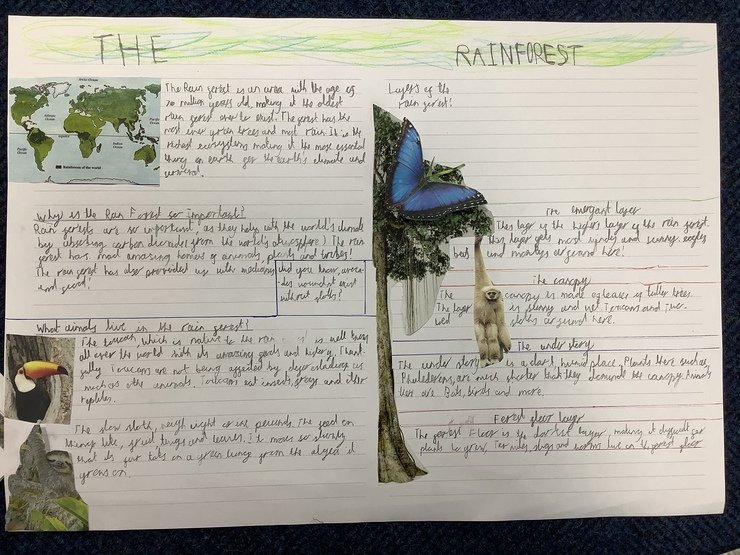 THE RAINFOREST
Arctic Ocean
Atlantic Ocean
Pacific Ocean
Equator
Indian Ocean
Pacific
Rainforests of the world
The Rain forest is an area with the age of
70 million years old, making it the oldest
rain forest ever to exist. The forest has the
most ever green trees and most rain. It is the
richest ecosystem, making it the most essential
thing on earth for the earth's climate and
Why is the Rain Forest so important?
Rain forests are so important, as they help with the world's climate
by absorbing carbon from the world's atmosphere! The rain
forest has made amazing homes of animals, plants and tribes!
The rain forest has also provided us with
and food!
Did you know, avoca-
dos wouldnt exist
without sloths?
What aimals live in the rain forest?
The toucan which is native to the rain is well known
all over the world with its amazing and Thank-
fully Toucans are not being affected by deforestation as
much as other animals. Toucans eat insects, frogs and other
reptiles.
The slow sloth, weigh eight or nine pounds. The food on
things like, fruit twigs and leaves. It moves so slowly
that its fur takes on a green from the algea it
grows on.
Layers of the
rain forest!
The emergant layer
This layer is the highest layer of the rain forest.
This layer gets most winds and sunny. eagles
bats and monkeys are found here!
The canopy
The canopy is made of leaves of taller trees.
The layer is sunny and wet. Toucans and Three-
toed sloths are found here.
The under story
The under story is a dark, humid place. Plants there such as,
Philodendrons, are much shorter than they the canopy. Animals
here are Bats, birds and more.
Forest floor layer
The forest Floor is the darkest layer, making it difficult for
plants to grow, Termites, slugs and worms live on the forest floor